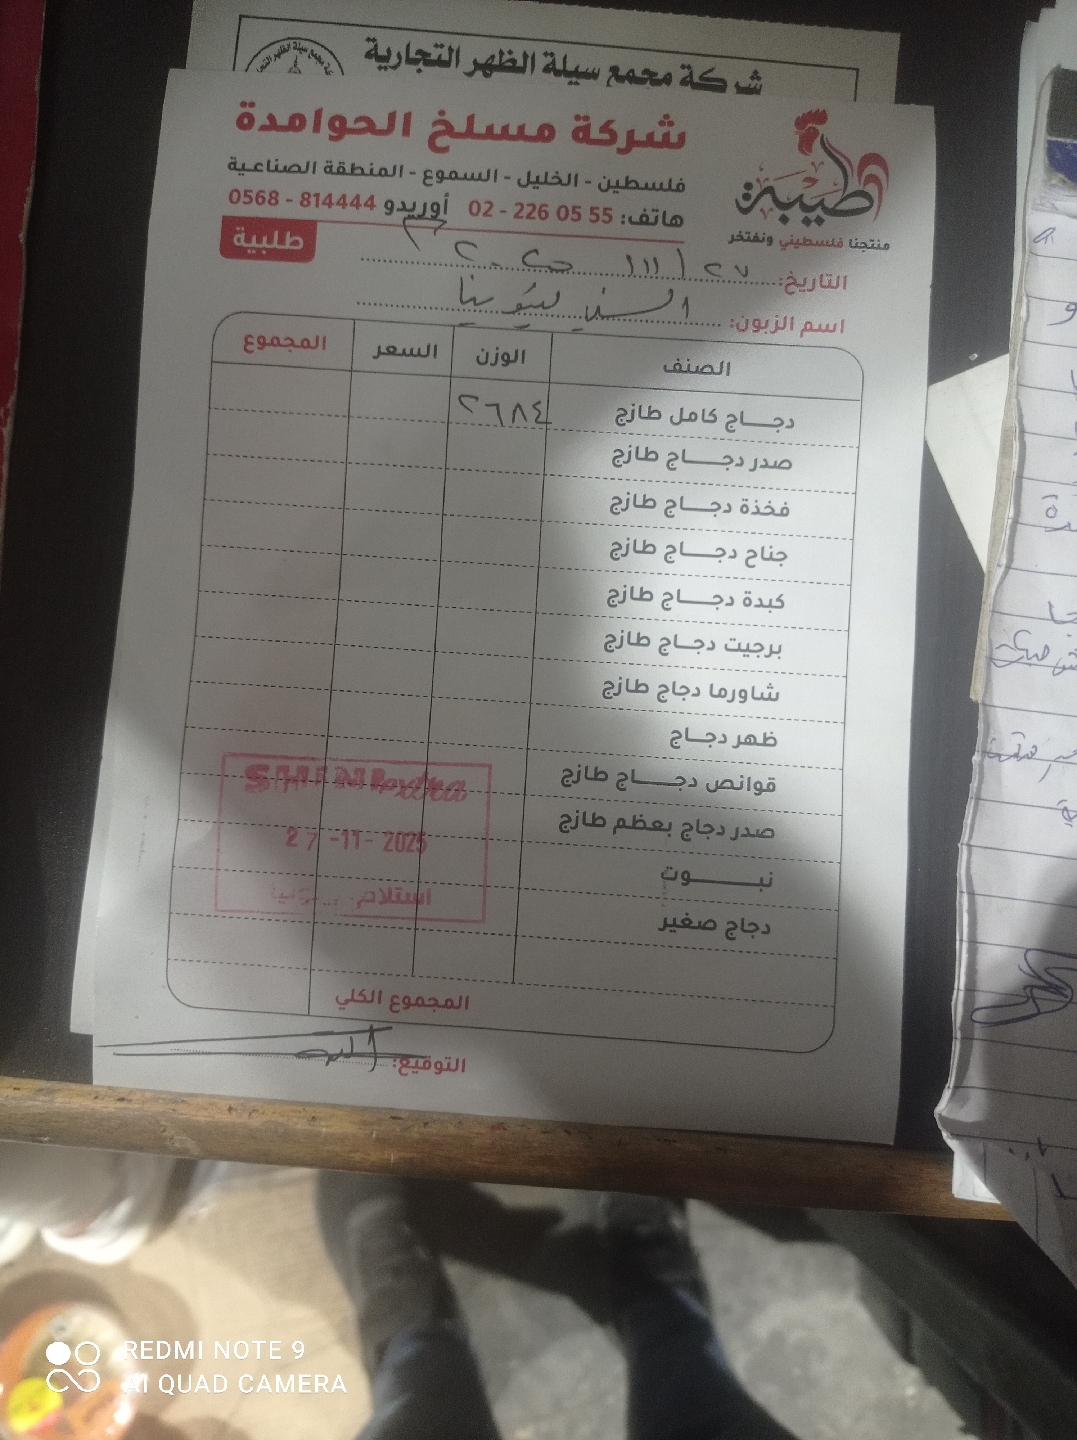 شركة مجمع سيلة الظهر التجارية
شركة مسلخ الحوامدة
فلسطين - الخليل - السموع - المنطقة الصناعية
هاتف: 02 - 226 05 55 أوريدو 0568 - 814444
طيبة
منتجنا فلسطيني ونفتخر
طلبية
التاريخ: ٢٧ / ١١
اسم الزبون:
الصنف الوزن السعر المجموع
دجاج كامل طازج ٢٦٨٤
صدر دجاج طازج
فخذة دجاج طازج
جناح دجاج طازج
كبدة دجاج طازج
برجيت دجاج طازج
شاورما دجاج طازج
ظهر دجاج
قوانص دجاج طازج
صدر دجاج بعظم طازج
نبوت
دجاج صغير
SHINI extra
27 -11- 2025
استلام
المجموع الكلي
التوقيع:
REDMI NOTE 9
AI QUAD CAMERA